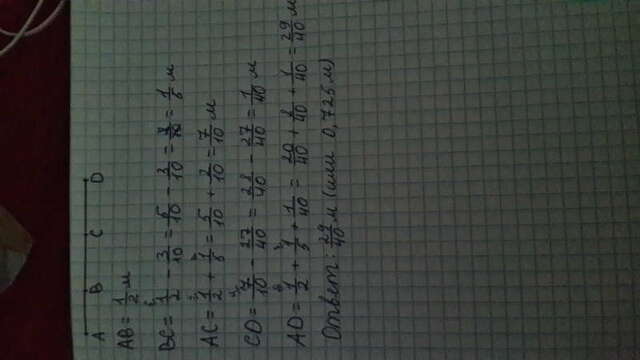 A B C D
AB = 1/2 м
BC = 1/2 - 3/10 = 5/10 - 3/10 = 2/10 = 1/5 м
AC = 1/2 + 1/5 = 5/10 + 2/10 = 7/10 м
CD = 7/10 - 27/40 = 28/40 - 27/40 = 1/40 м
AD = 1/2 + 1/5 + 1/40 = 20/40 + 8/40 + 1/40 = 29/40 м
Ответ: 29/40 м (или 0,725 м)